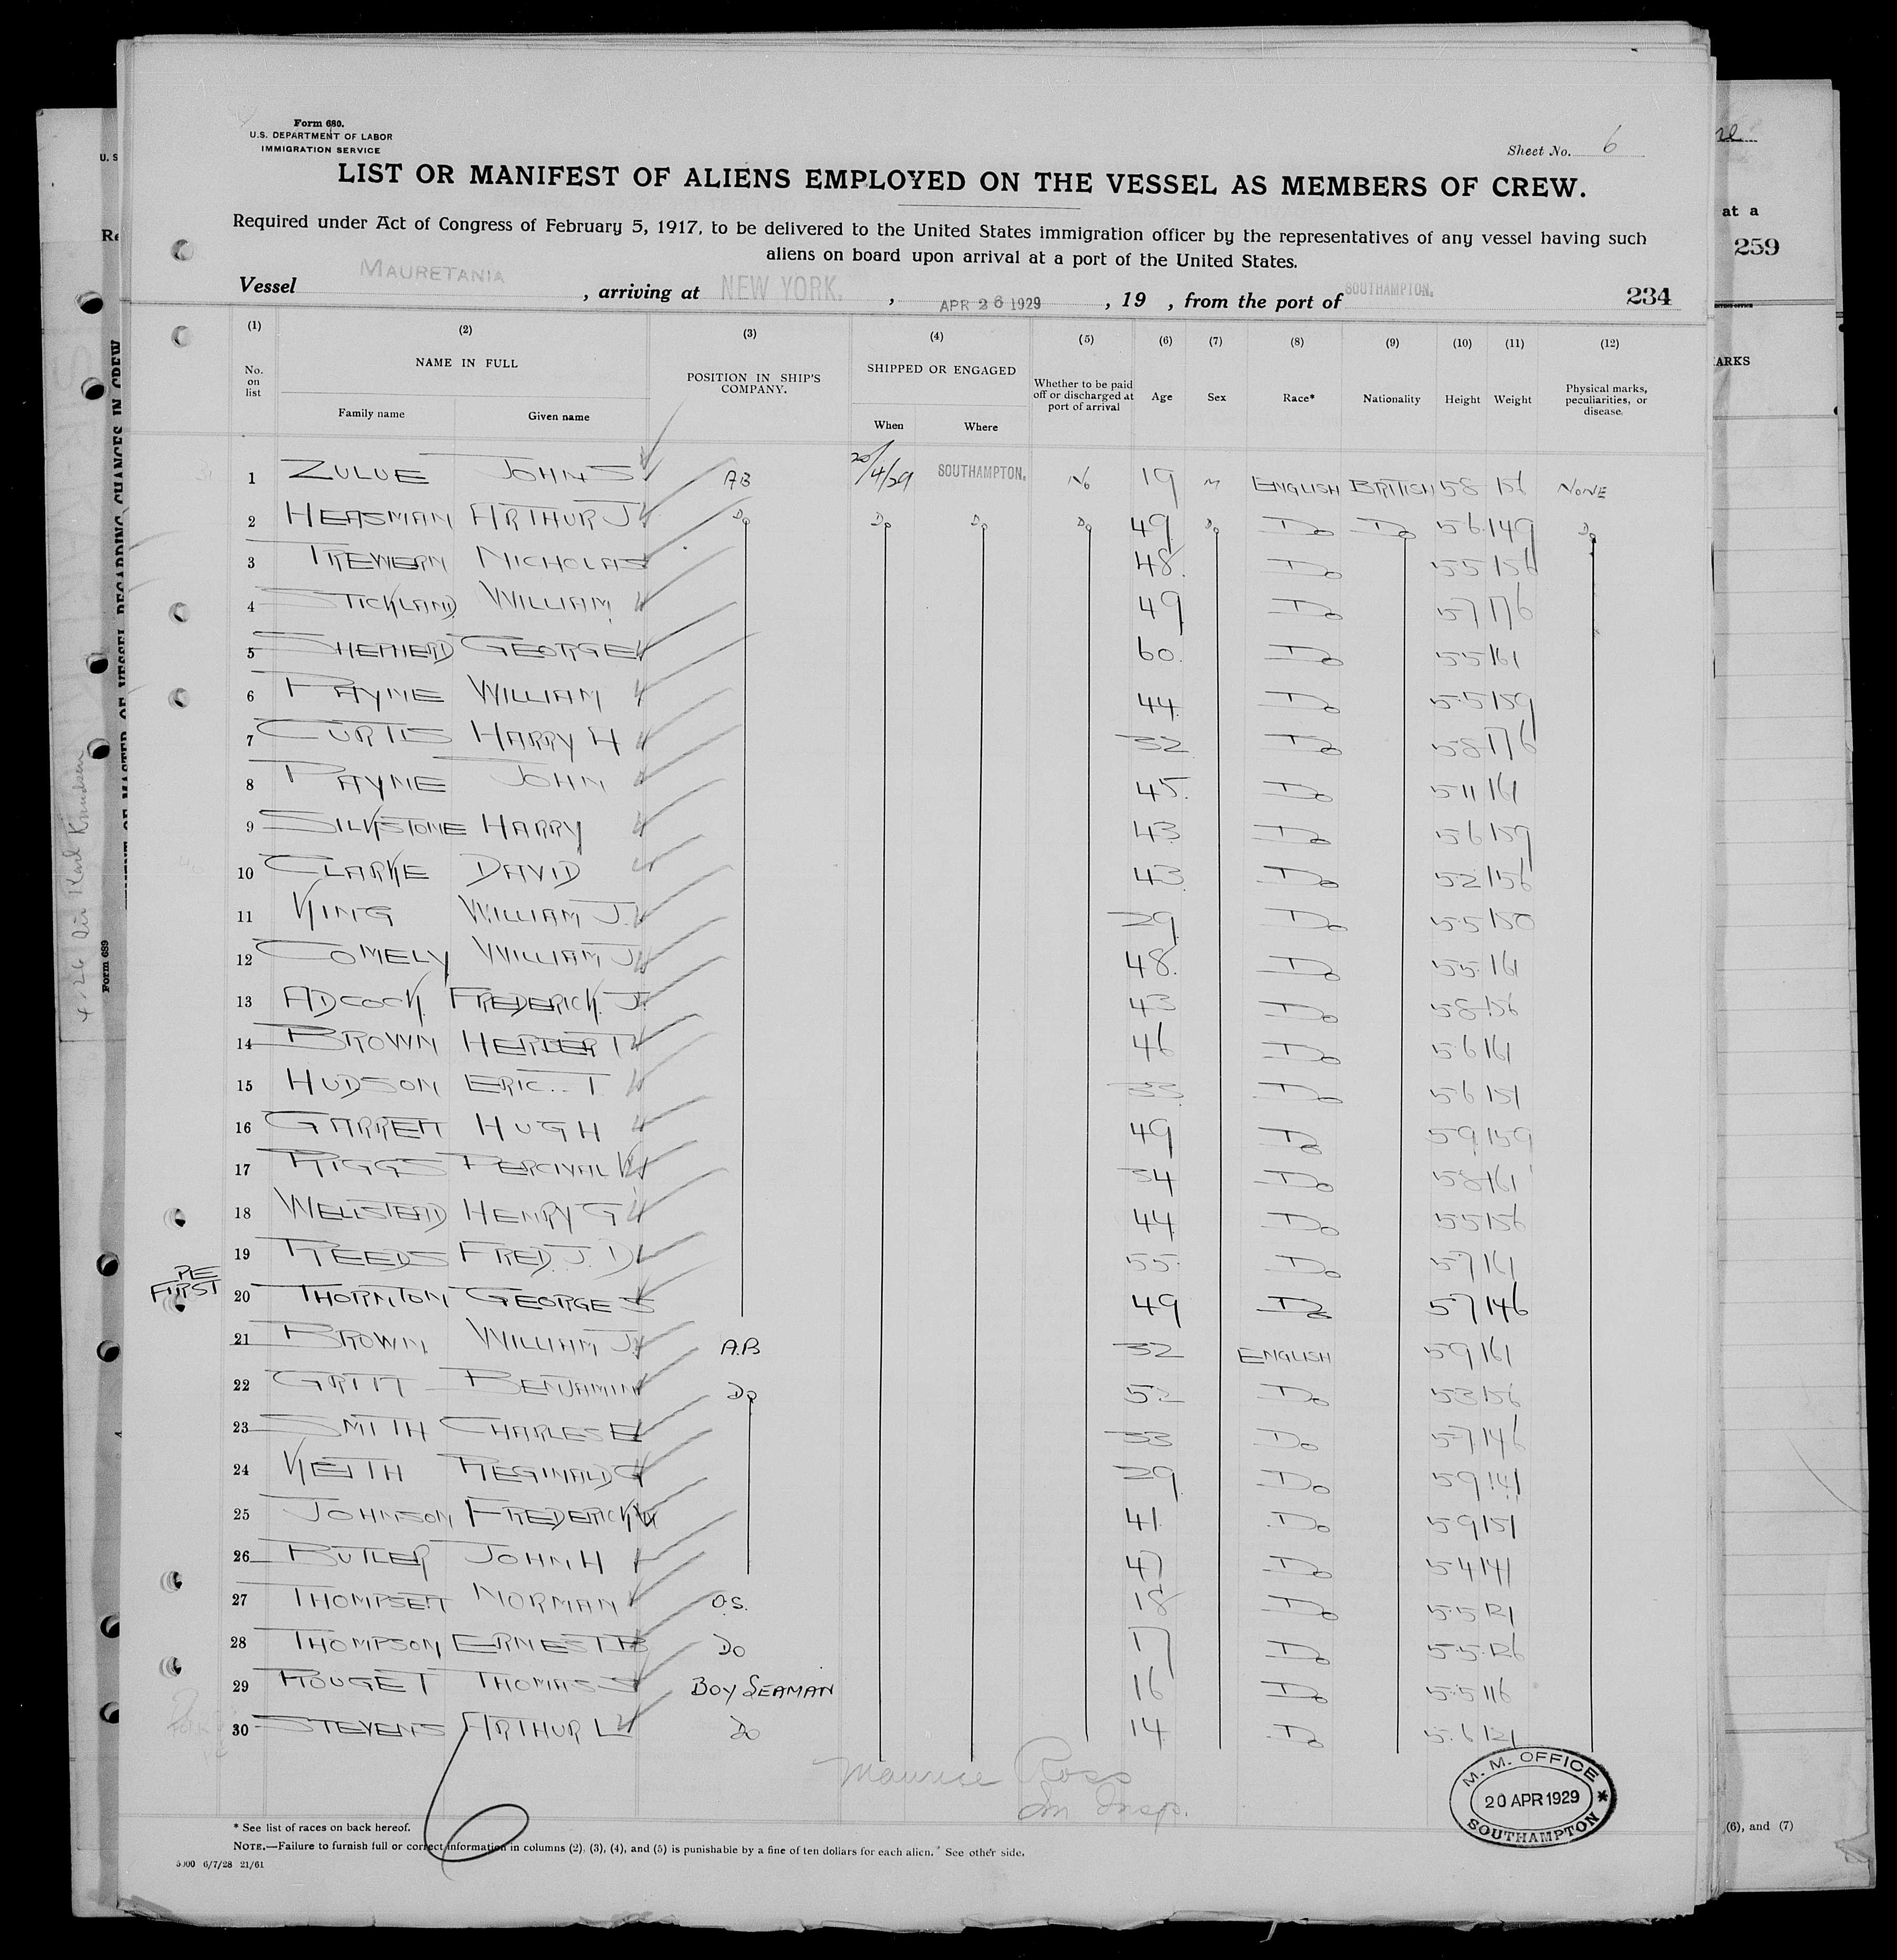 Form 680.
U.S. DEPARTMENT OF LABOR
IMMIGRATION SERVICE
Sheet No. 6
LIST OR MANIFEST OF ALIENS EMPLOYED ON THE VESSEL AS MEMBERS OF CREW.
Required under Act of Congress of February 5, 1917, to be delivered to the United States immigration officer by the representatives of any vessel having such
aliens on board upon arrival at a port of the United States.
Vessel MAURETANIA, arriving at NEW YORK., APR 26 1929, 19 , from the port of SOUTHAMPTON. 234
(1) (2) (3) (4) (5) (6) (7) (8) (9) (10) (11) (12)
No. on list
NAME IN FULL
Family name Given name
POSITION IN SHIP'S COMPANY.
SHIPPED OR ENGAGED
When Where
Whether to be paid off or discharged at port of arrival
Age Sex Race* Nationality Height Weight
Physical marks, peculiarities, or disease.
1 ZULUE JOHN S AB 20/4/29 SOUTHAMPTON. No 19 M ENGLISH BRITISH 58 156 NONE
2 HEASMAN ARTHUR J Do Do Do Do 49 Do Do Do 56 149 Do
3 TREWERN NICHOLAS 48 Do 55 156
4 STICKLAND WILLIAM 49 Do 57 176
5 SHEPHERD GEORGE 60 Do 55 161
6 PAYNE WILLIAM 44 Do 55 159
7 CURTIS HARRY H 32 Do 58 176
8 PAYNE JOHN 45 Do 511 161
9 SILKSTONE HARRY 43 Do 56 159
10 CLARKE DAVID 43 Do 52 156
11 KING WILLIAM J. 29 Do 55 150
12 COMELY WILLIAM J 48 Do 55 161
13 ADCOCK FREDERICK. J. 43 Do 58 156
14 BROWN HERBERT 46 Do 56 161
15 HUDSON ERIC. T 33 Do 56 151
16 GARRETT HUGH 49 Do 59 159
17 RIGGS PERCIVAL W 34 Do 58 161
18 WELLSTEAD HENRY G 44 Do 55 156
19 REEDS FRED. J. D 55 Do 57 161
PE
FIRST
20 THORNTON GEORGE S 49 Do 57 146
21 BROWN WILLIAM J. A.B 32 ENGLISH 59 161
22 GRITT BENJAMIN Do 52 Do 53 156
23 SMITH CHARLES E 33 Do 57 146
24 KEITH REGINALD G 29 Do 59 141
25 JOHNSON FREDERICK W 41 Do 59 151
26 BUTLER JOHN H 47 Do 54 141
27 THOMPSETT NORMAN O.S. 18 Do 55 121
28 THOMPSON ERNEST B Do 17 Do 55 126
29 ROUGET THOMAS S BOY SEAMAN 16 Do 55 116
30 STEVENS ARTHUR L Do 14 Do 5.6 121
Maurice Ross
Im Insp.
M. M. OFFICE
20 APR 1929
SOUTHAMPTON
* See list of races on back hereof.
NOTE.—Failure to furnish full or correct information in columns (2), (3), (4), and (5) is punishable by a fine of ten dollars for each alien. See other side.
6/7/28 21/61
Form 689
at a
259
ARKS
(6), and (7)